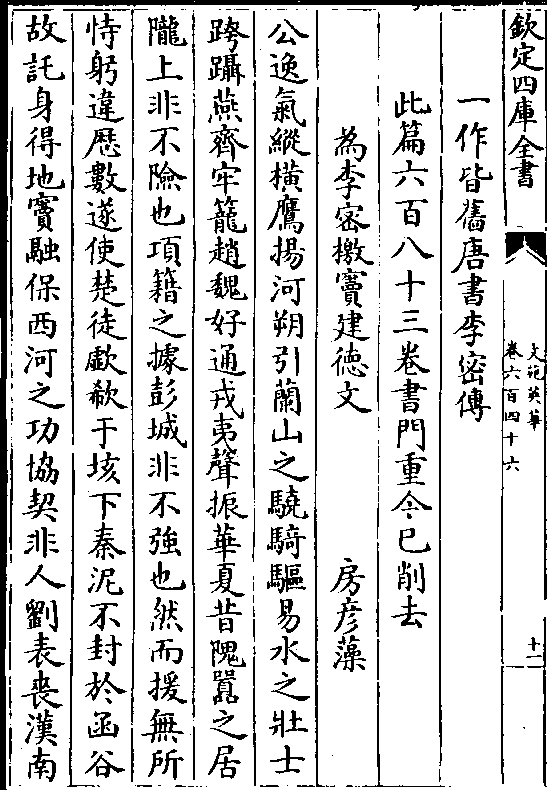 欽定四庫全書
文苑英華
卷六百四十六
十一
一作皆舊唐書李密傳
此篇六百八十三卷書門重今已削去
為李密檄竇建徳文 房彦藻
公逸氣縱橫鷹揚河朔引蘭山之驍騎驅易水之壯士
跨躡燕齊牢籠趙魏好通戎夷聲振華夏昔隗囂之居
隴上非不險也項籍之據彭城非不強也然而援無所
恃躬違歷數遂使楚徒歔欷于垓下秦泥不封於函谷
故託身得地竇融保西河之功協契非人劉表喪漢南